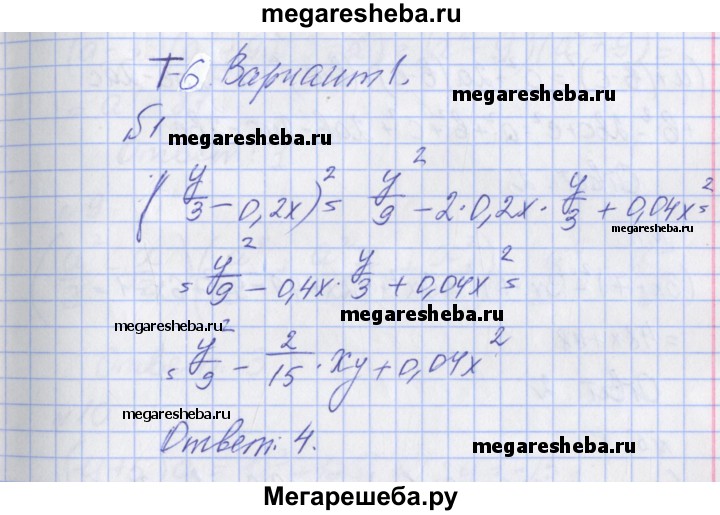 megaresheba.ru
Т-6 Вариант 1.
megaresheba.ru
Б1 megaresheba.ru
(y/3 - 0,2x)² = y²/9 - 2·0,2x·y/3 + 0,04x² =
megaresheba.ru
= y²/9 - 0,4x·y/3 + 0,04x² =
megaresheba.ru megaresheba.ru
= y²/9 - 2/15·xy + 0,04x²
megaresheba.ru
Ответ: 4.
megaresheba.ru
Мегарешеба.ру